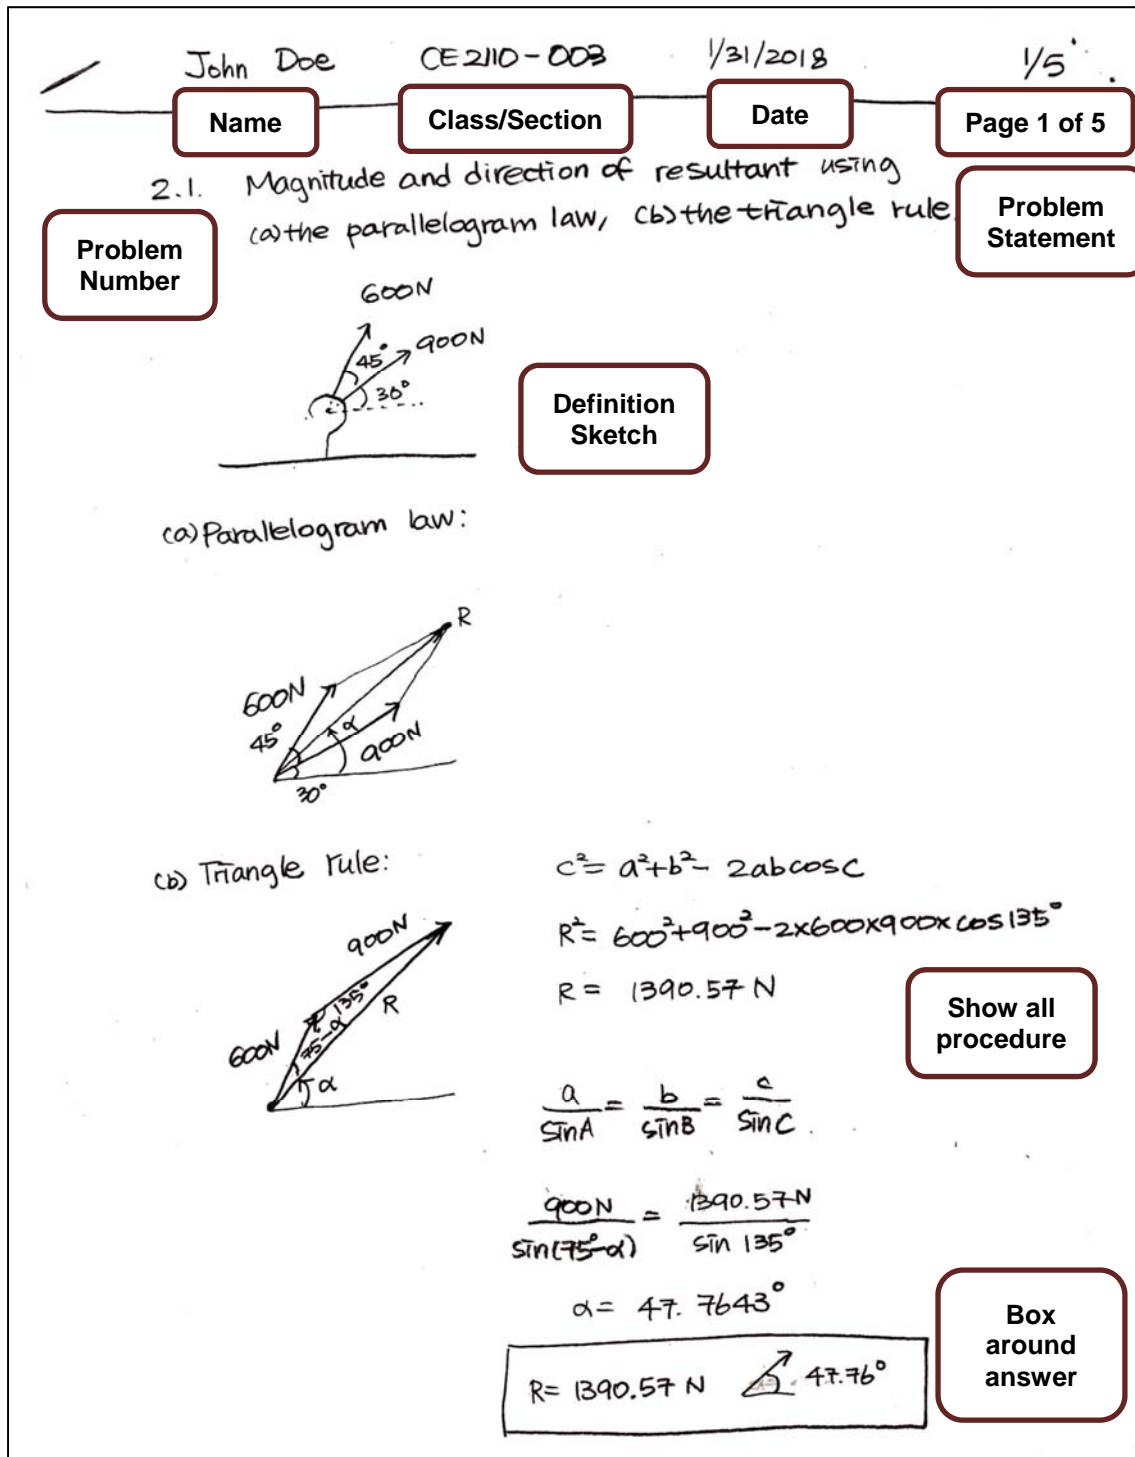 John Doe CE2110-003 1/31/2018 1/5
Name Class/Section Date Page 1 of 5
2.1. Magnitude and direction of resultant using
(a) the parallelogram law, (b) the triangle rule.
Problem
Number
Problem
Statement
600N
900N
45°
30°
Definition
Sketch
(a) Parallelogram law:
R
600N
45°
α
900N
30°
(b) Triangle rule:
900N
135°
R
75-α
600N
α
c²= a²+b²- 2abcosC
R²= 600²+900²-2×600×900×cos135°
R= 1390.57 N
Show all
procedure
a/sinA = b/sinB = c/sinC
900N/sin(75°-α) = 1390.57N/sin 135°
α= 47.7643°
R= 1390.57 N 47.76°
Box
around
answer